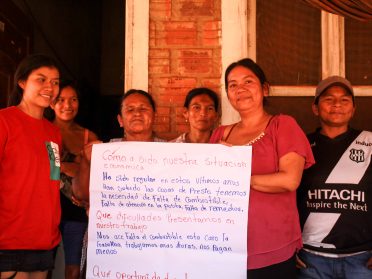 Cómo a sido nuestra situación
economica
Ha sido regular en estos ultimos años
han subido las cosas de Precio tenemos
la nesesidad de falta de combustible,
falta de remedios.
Que dificultades Presentamos en
nuestro trabajo
Nos asefalta el combustible esta caro la
Gasolina, trabajamos mas duros, nos Pagan
menos.
Que oportunidad
indu
HITACHI
Inspire the Next